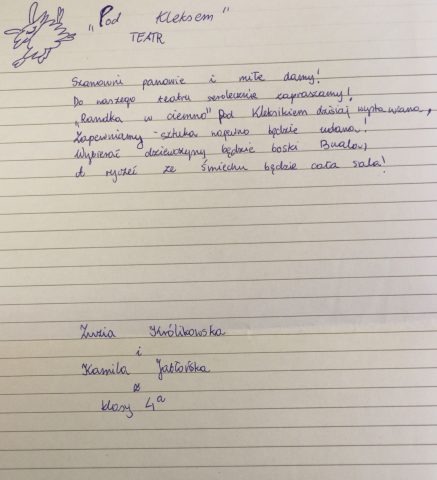 „Pod Kleksem"
TEATR
Szanowni panowie i miłe damy!
Do naszego teatru serdecznie zapraszamy!
„Randka w ciemno" pod Kleksikiem dzisiaj wystawiana,
Zapewniamy - sztuka napewno będzie udana!
Wybierać dziewczyny będzie boski
A ryczeć ze śmiechu będzie cała sala!
Zuzia Królikowska
i
Kamila Jabłońska
klasy 4a